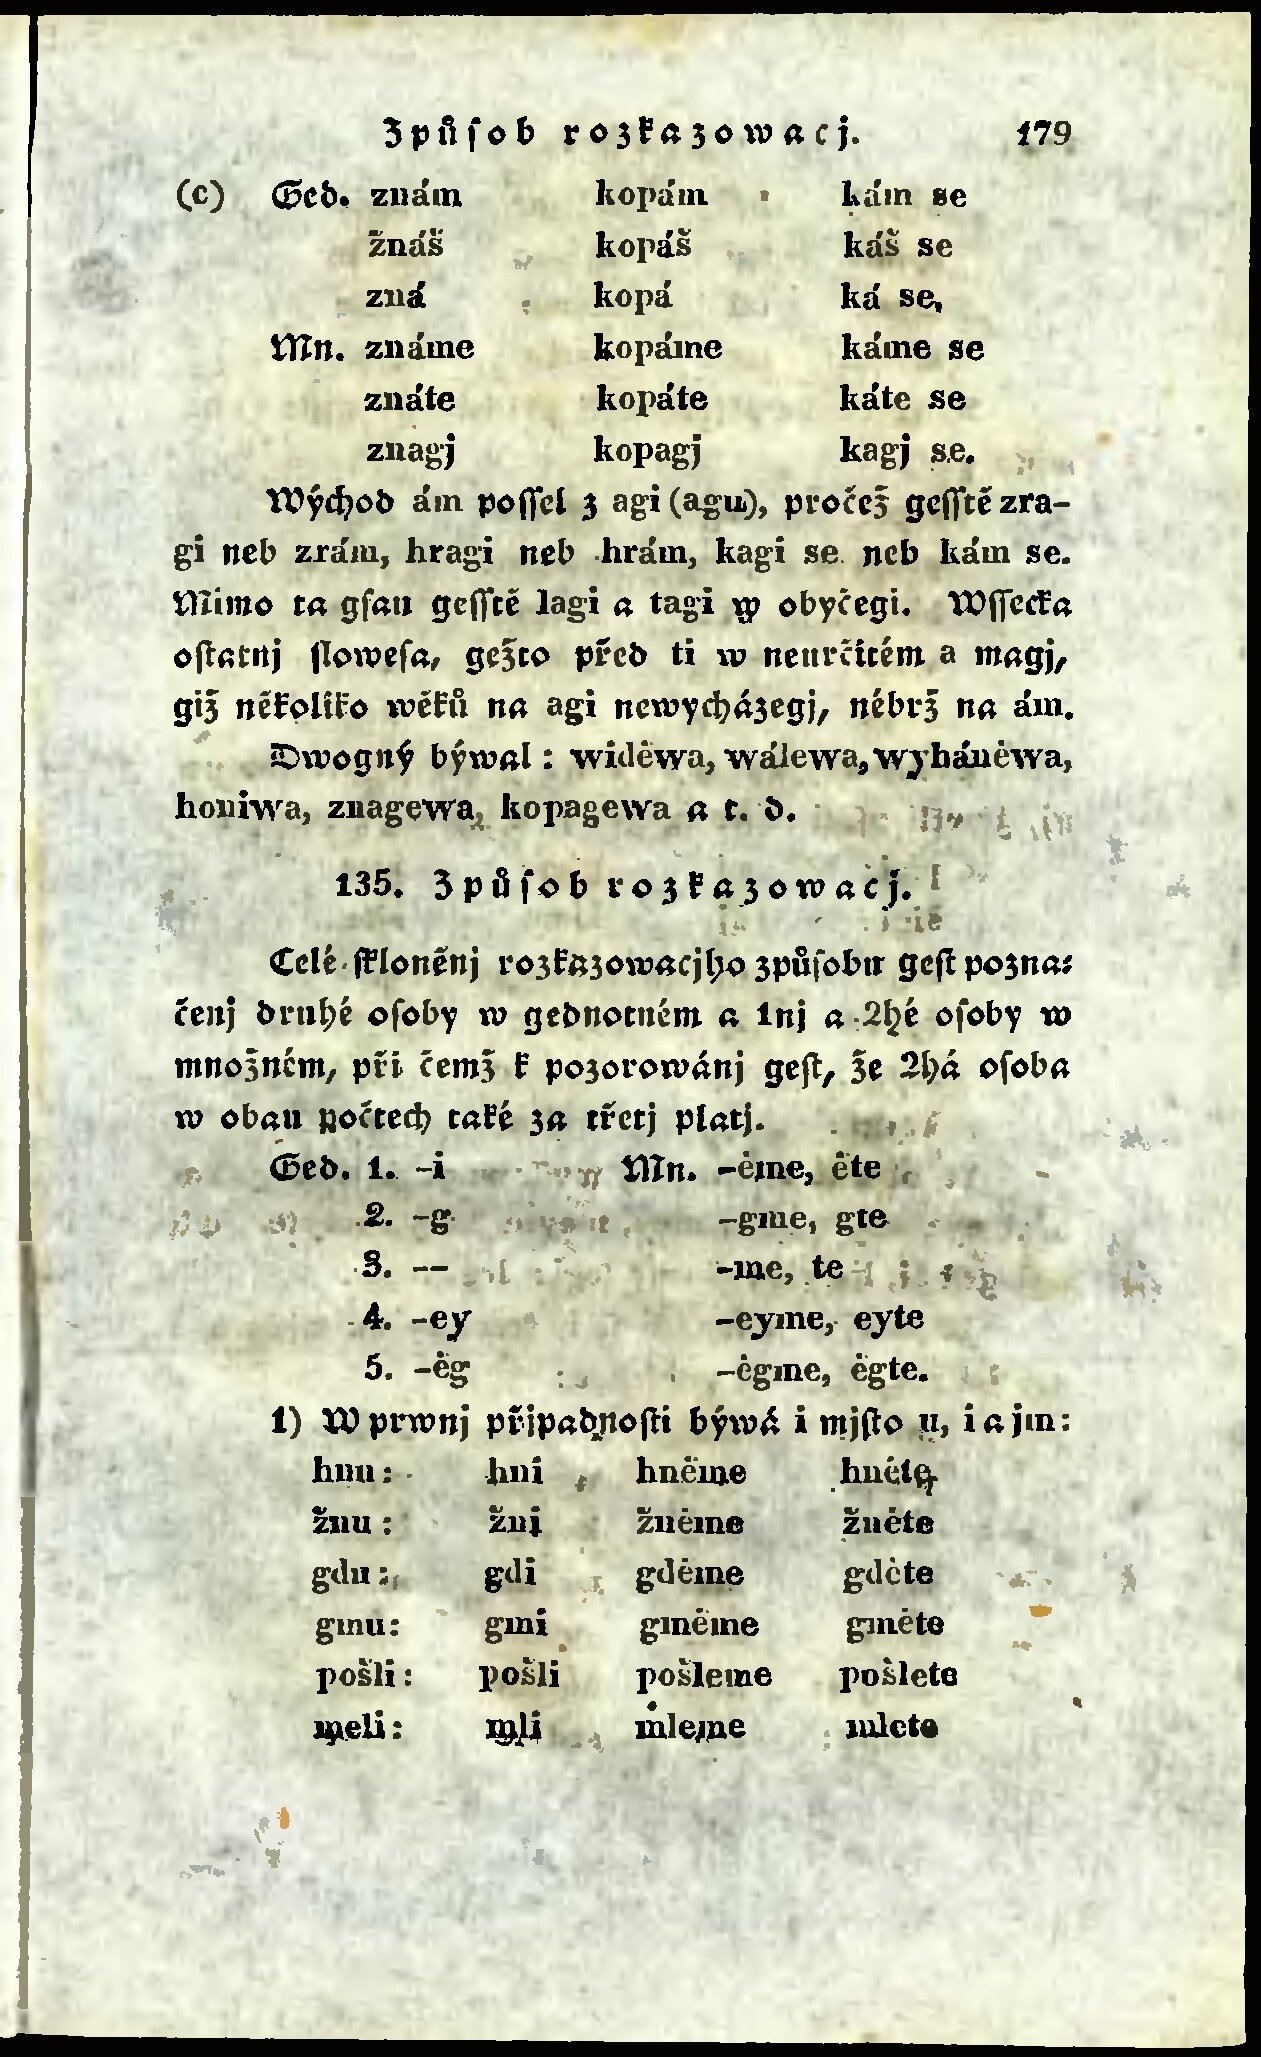 Způſob rozkazowacj. 179
(c) Ged. znám kopám kám se
žnáš kopáš káš se
zná kopá ká se,
Mn. známe kopáme káme se
znáte kopáte káte se
znagj kopagj kagj se.
Wýchod ám poſſel z agi (agu), pročež geſſtě zra-
gi neb zrám, hragi neb hrám, kagi se neb kám se.
Mimo ta gſau geſſtě lagi a tagi w obyčegi. Wſſecka
oſtatnj ſloweſa, gežto před ti w neurčitém a magj,
giž několiko wěků na agi newycházegj, nébrž na ám.
Dwogný býwal: widěwa, wálewa, wyháněwa,
honiwa, znagewa, kopagewa a t. d.
135. Způſob rozkazowacj.
Celé ſkloněnj rozkazowacjho způſobu geſt pozna-
čenj druhé oſoby w gednotném a 1nj a 2hé oſoby w
množném, při čemž k pozorowánj geſt, že 2há oſoba
w obau počtech také za třetj platj.
Ged. 1. -i Mn. -ěme, ěte
2. -g -gme, gte
3. -- -me, te
4. -ey -eyme, eyte
5. -ěg -ěgme, ěgte.
1) W prwnj přjpadnoſti býwá i mjſto u, i a jm:
hnu: hni hněme hněte
žnu: žni žněme žněte
gdu: gdi gděme gděte
gmu: gmi gměme gměte
pošli: pošli pošleme pošlete
meli: mli mleme mlete